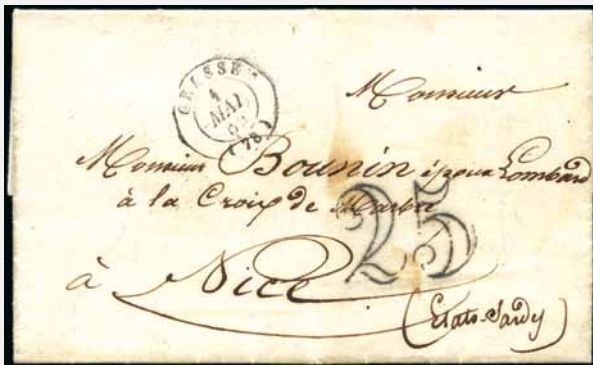 GRASSE
4
MAI
52
(78)
Monsieur
Monsieur Bounin époux Lombard
à la Croix de Marbre
25
à Nice
(Etats-Sardes)